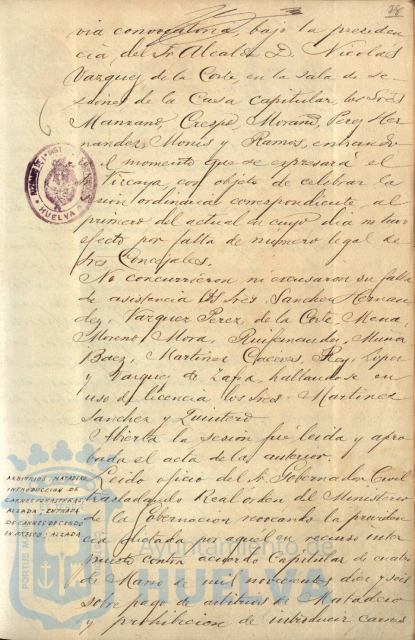 28
via convocatoria bajo la presiden
cia del Sr Alcalde D. Nicolás
Vazquez de la Corte, en la sala de se
siones de la Casa capitular, los Sres
Manzano, Crespo, Morano, Perez Her
nandez, Monis y Ramos, entrando
el momento que se expresará el
Vizcaya, con objeto de celebrar la
sión ordinaria correspondiente al
primero del actual en cuyo dia no tuvo
efecto por falta de número legal de
Sres Concejales.
No concurrieron ni excusaron su falta
de asistencia los Sres. Sanchez Hernan
dez, Vazquez Perez, de la Corte, Mena,
Moreno Mora, Ruifernandez, Muñoz
Baez, Martinez Caceres, Rey, Lopez
y Vazquez de Zafra, hallandose en
uso de licencia los Sres Martinez
Sanchez y Quintero
Abierta la sesión fué leida y apro
bada el acta de la anterior.
ARBITRIOS: MATADERO
INTRODUCCION DE
CARNES FORASTERAS,
ALZADA: ENTRADA
DE CARNES DE CERDO
EN FRESCO: ALZADA
Leido oficio del Sr Gobernador Civil
trasladando Real orden del Ministerio
de la Gobernacion revocando la providen
cia dictada por aquel en recurso inter
puesto contra acuerdo Capitular de cuatro
de Marzo de mil novecientos diez y seis
sobre pago de arbitrios de Matadero
y prohibicion de introducir carnes
HUELVA
PORTUS MARIS
Ayuntamiento de
HUELVA